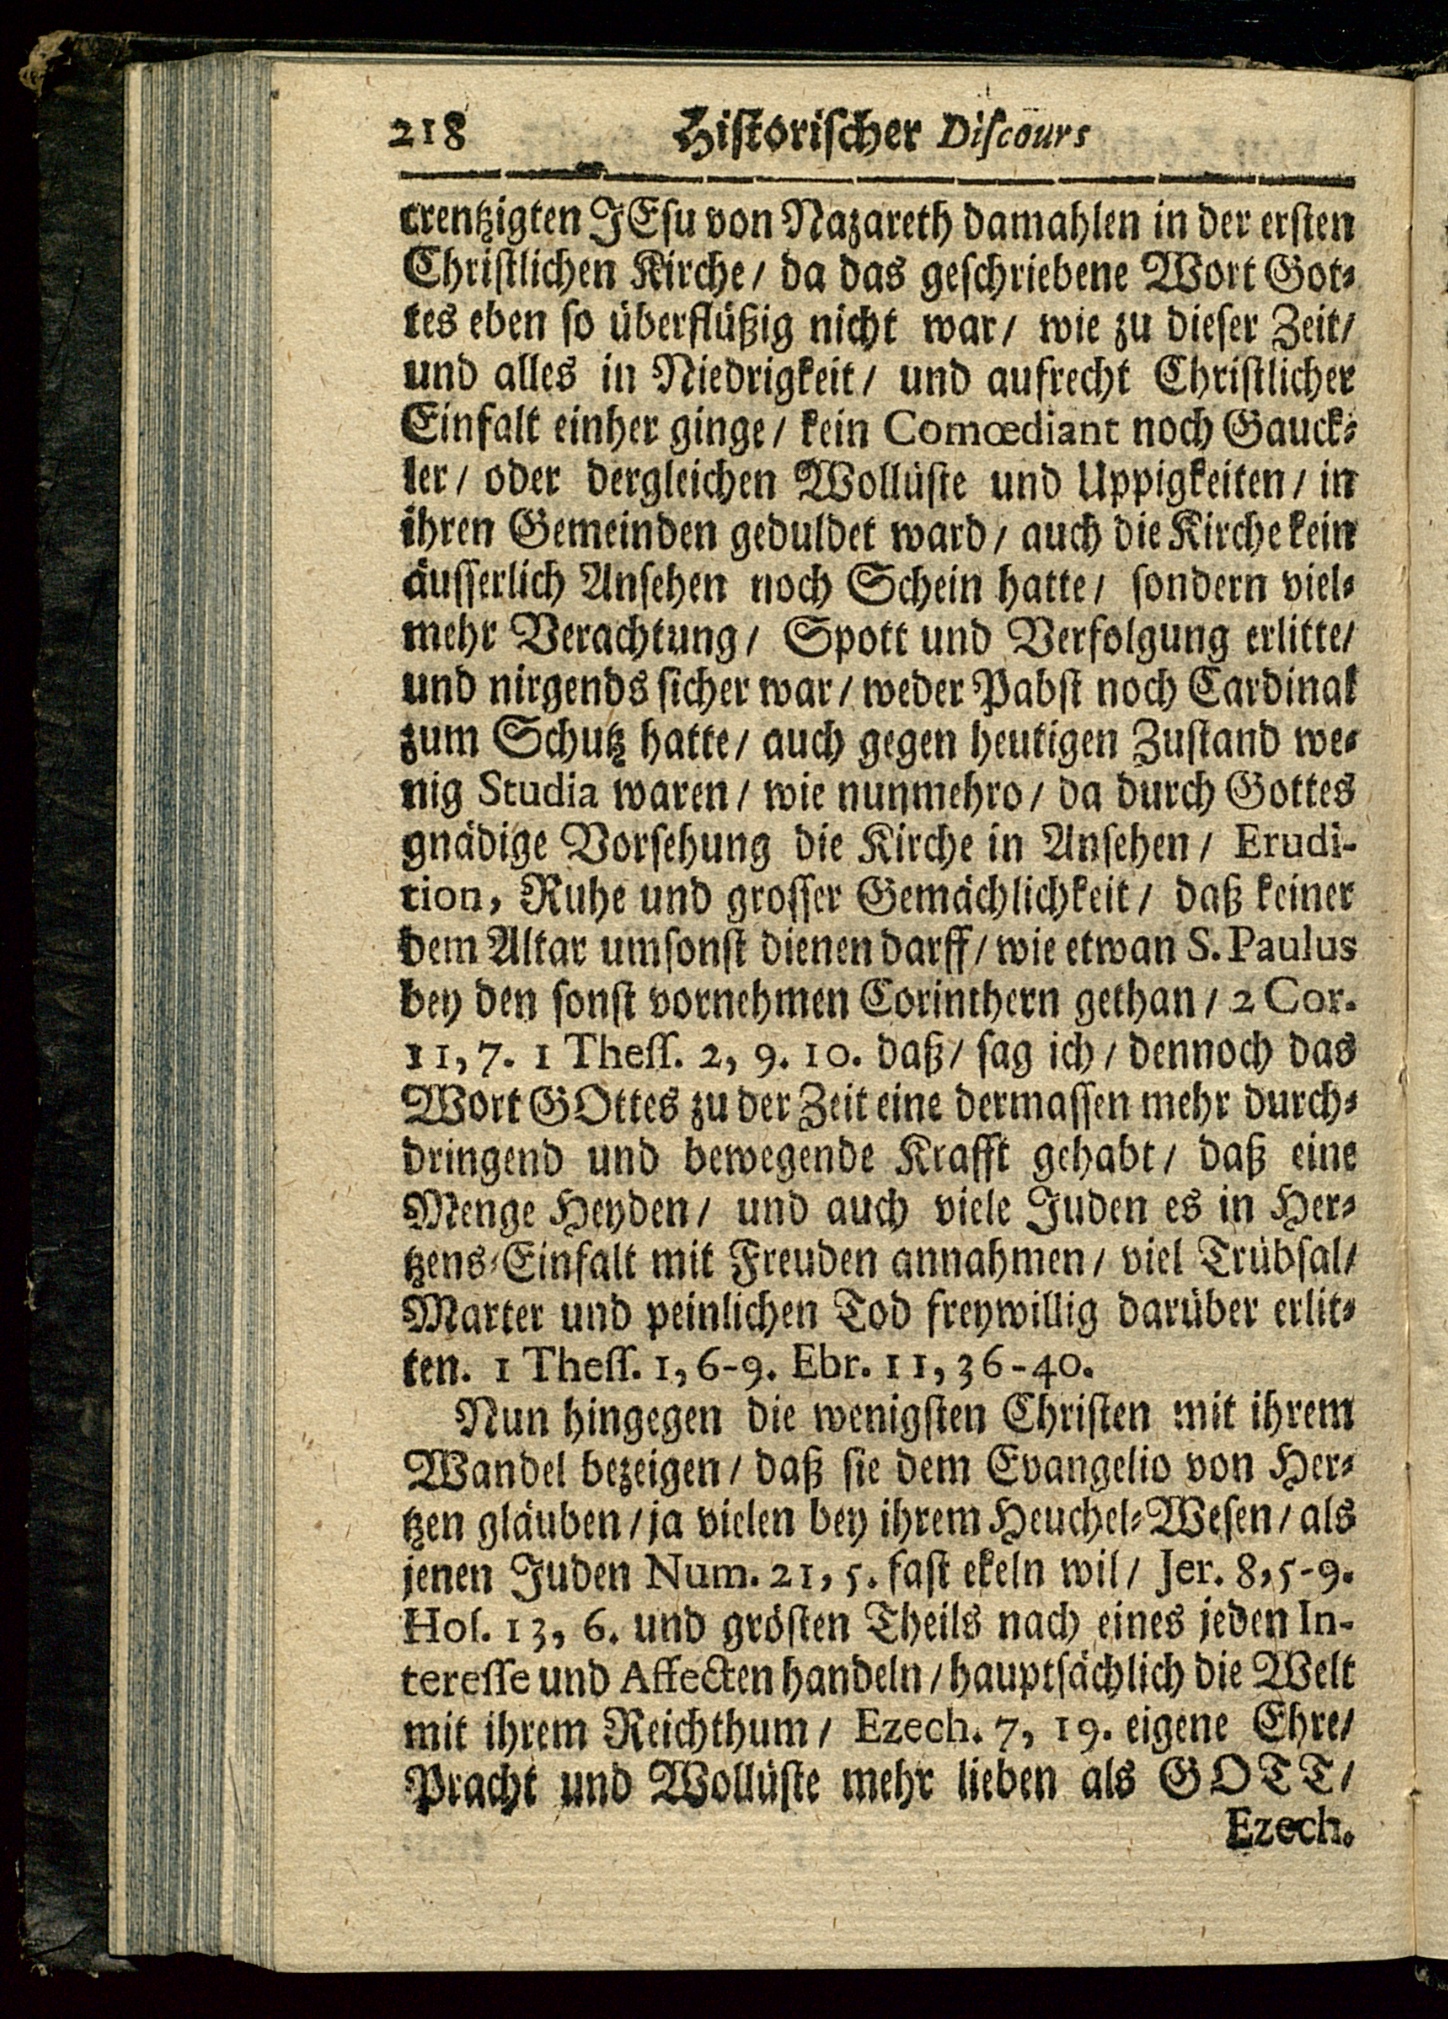 218 Historischer Discours
crentzigten JEsu von Nazareth damahlen in der ersten
Christlichen Kirche/ da das geschriebene Wort Got-
tes eben so überflüßig nicht war/ wie zu dieser Zeit/
und alles in Niedrigkeit/ und aufrecht Christlicher
Einfalt einher ginge/ kein Comœdiant noch Gauck-
ler/ oder dergleichen Wollüste und Uppigkeiten/ in
ihren Gemeinden geduldet ward/ auch die Kirche kein
äusserlich Ansehen noch Schein hatte/ sondern viel-
mehr Verachtung/ Spott und Verfolgung erlitte/
und nirgends sicher war/ weder Pabst noch Cardinal
zum Schutz hatte/ auch gegen heutigen Zustand we-
nig Studia waren/ wie nunmehro/ da durch Gottes
gnädige Vorsehung die Kirche in Ansehen/ Erudi-
tion, Ruhe und grosser Gemächlichkeit/ daß keiner
dem Altar umsonst dienen darff/ wie etwan S. Paulus
bey den sonst vornehmen Corinthern gethan/ 2 Cor.
11, 7. 1 Thess. 2, 9. 10. daß/ sag ich/ dennoch das
Wort GOttes zu der Zeit eine dermassen mehr durch-
dringend und bewegende Krafft gehabt/ daß eine
Menge Heyden/ und auch viele Juden es in Her-
tzens-Einfalt mit Freuden annahmen/ viel Trübsal/
Marter und peinlichen Tod freywillig darüber erlit-
ten. 1 Thess. 1, 6-9. Ebr. 11, 36-40.
Nun hingegen die wenigsten Christen mit ihrem
Wandel bezeigen/ daß sie dem Evangelio von Her-
tzen gläuben/ ja vielen bey ihrem Heuchel-Wesen/ als
jenen Juden Num. 21, 5. fast ekeln wil/ Jer. 8, 5-9.
Hos. 13, 6. und grösten Theils nach eines jeden In-
teresse und Affecten handeln/ hauptsächlich die Welt
mit ihrem Reichthum/ Ezech. 7, 19. eigene Ehre/
Pracht und Wollüste mehr lieben als GOTT/
Ezech.